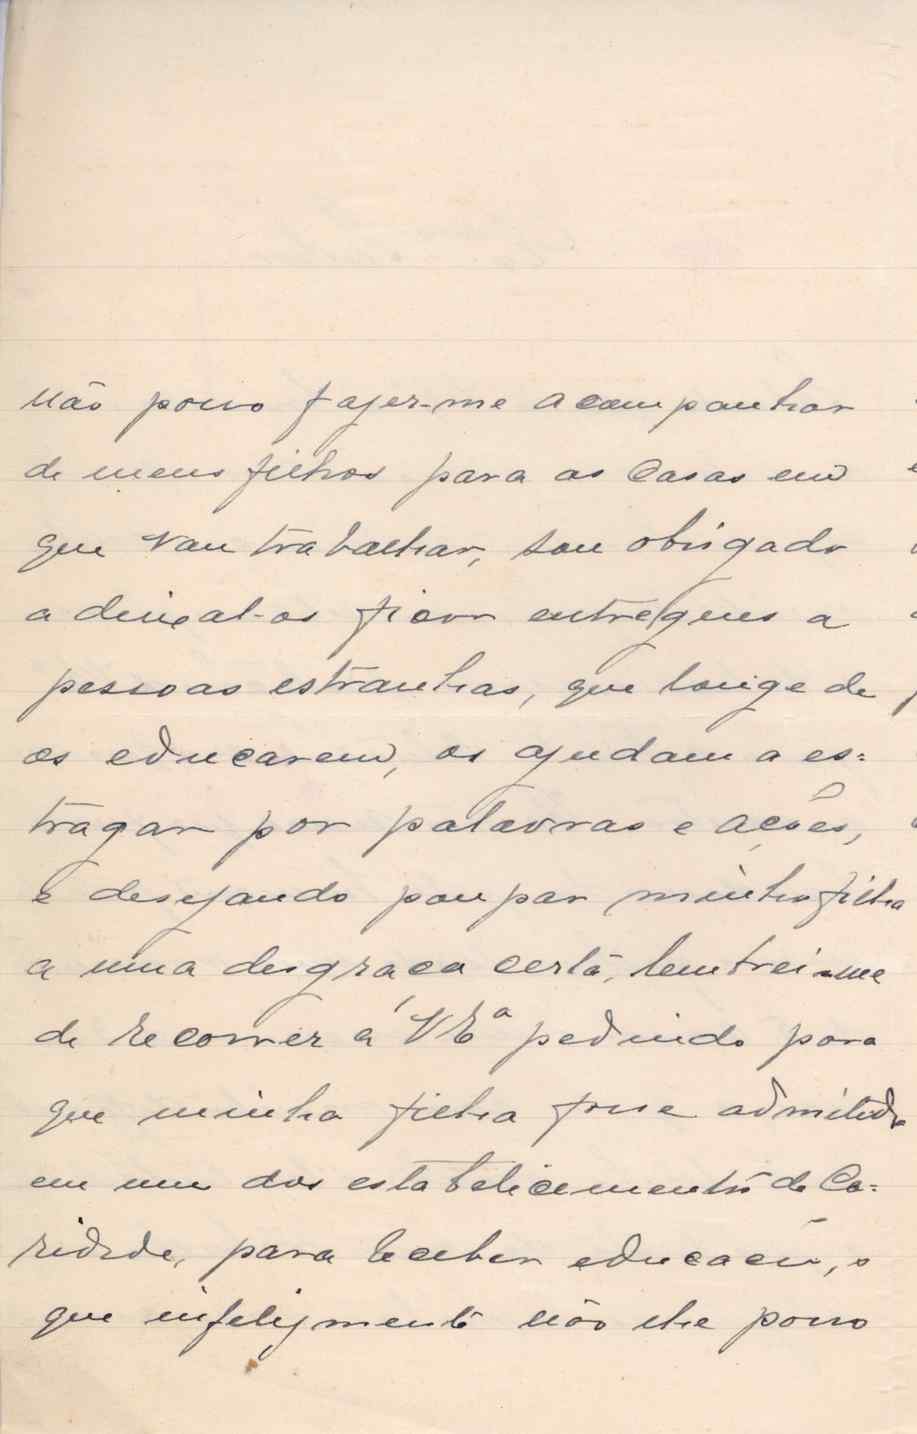 não posso fazer-me acompanhar
de meus filhos para as casas em
que vou trabalhar, sou obrigado
a deixal-os ficar entregues a
pessoas estranhas, que longe de
os educarem, os ajudam a es=
tragar por palavras e acções,
e desejando poupar minha filha
a uma desgraça certa, lembrei-me
de recorrer á V Eª pedindo para
que minha filha fosse admitida
em um dos estabelicimentos de Ca=
ridade, para receber educação, o
que infelizmente não lhe posso